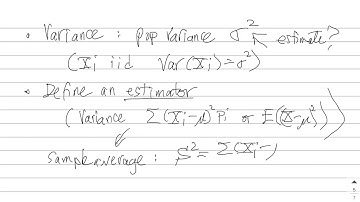 • Variance : pop variance σ² ↖ estimate?
(Xi iid Var(Xi)=σ²)
• Define an estimator
(Variance Σ(Xi-μ)²Pi or E((X-μ)²))
sample average : S² = Σ(Xi-